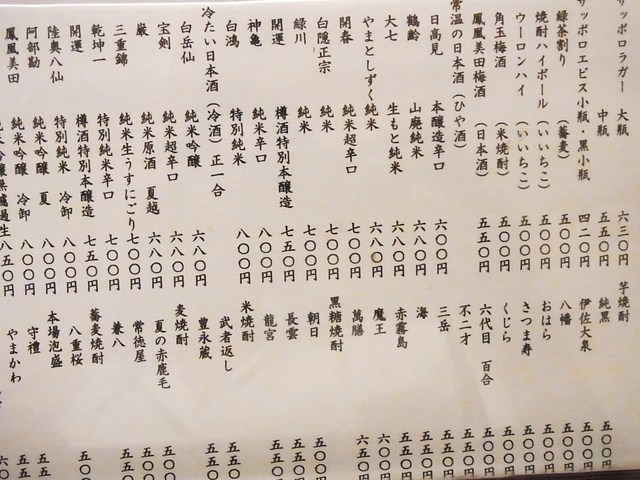 サッポロラガー 大瓶 六三〇円
中瓶 五五〇円
サッポロエビス小瓶・黒小瓶 四二〇円
緑茶割り (蕎麦) 五〇〇円
焼酎ハイボール (いいちこ) 五〇〇円
ウーロンハイ (いいちこ) 五〇〇円
角玉梅酒 (米焼酎) 五五〇円
鳳凰美田梅酒 (日本酒) 五五〇円
常温の日本酒 (ひや酒)
日高見 本醸造辛口 六〇〇円
鶴齢 山廃純米 六八〇円
大七 生もと純米 六八〇円
やまとしずく 純米 六八〇円
開春 純米超辛口 七〇〇円
白隠正宗 純米 七〇〇円
緑川 純米 七〇〇円
開運 樽酒特別本醸造 七五〇円
神亀 純米辛口 八〇〇円
白鴻 特別純米 八〇〇円
冷たい日本酒 (冷酒) 正一合
白岳仙 純米吟醸 六八〇円
宝剣 純米超辛口 六八〇円
巌 純米原酒 夏越 六八〇円
三重錦 純米生うすにごり 七〇〇円
乾坤一 特別純米辛口 七〇〇円
開運 樽酒特別本醸造 七五〇円
陸奥八仙 特別純米 冷卸 八〇〇円
阿部勘 純米吟醸 夏 八〇〇円
鳳凰美田 純米吟醸 冷卸 八〇〇円
純米吟醸無濾過生 八五〇円
芋焼酎
純黒 五〇〇円
伊佐大泉
八幡
おはら
さつま寿
くじら
六代目 百合
不二才
三岳
海
赤霧島
魔王 六〇〇円
萬膳 六五〇円
黒糖焼酎
朝日 五〇〇円
長雲 五五〇円
龍宮 五五〇円
米焼酎
武者返し
豊永蔵
麦焼酎
夏の赤鹿毛
常徳屋
兼八
蕎麦焼酎
八重桜
本場泡盛
守禮
やまかわ